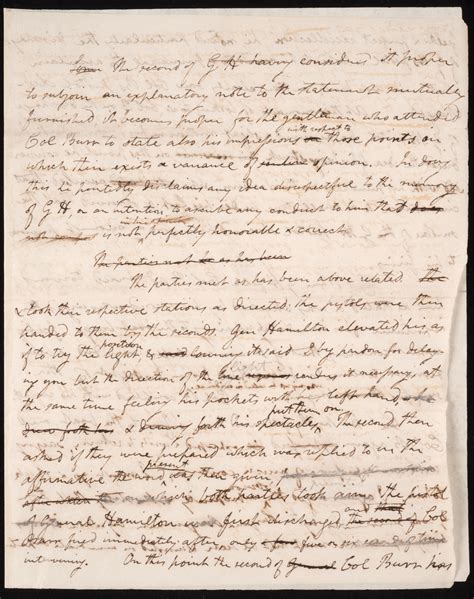 The second of G H having considered it proper
to subjoin an explanatory note to the statement mutually
furnished it becomes proper for the gentleman who attended
Col Burr to state also his impressions with respect to those points on
which there exists a variance of opinion. In doing
this he pointedly disclaims any idea disrespectful to the memory
of G H. or an intention to ascribe any conduct to him that does
not is not in his opinion perfectly honorable & correct.
The parties met as has been
The parties met as has been above related. The
& took their respective stations as directed: the pistols were then
handed to them by the seconds. Gen Hamilton elevated his, as
if to try the light, & lowering it said I beg pardon for delay-
ing you but the direction of the light renders it necessary, at
the same time feeling his pockets with his left hand,
& drawing forth his spectacles put them on. The second then
asked if they were prepared which was replied to in the
affirmative. The word present was then given,
both parties took aim. The pistol
of General Hamilton was first discharged and Col
Burr fired immediately after, only five or six seconds of time
intervening. On this point the second of Col Burr has